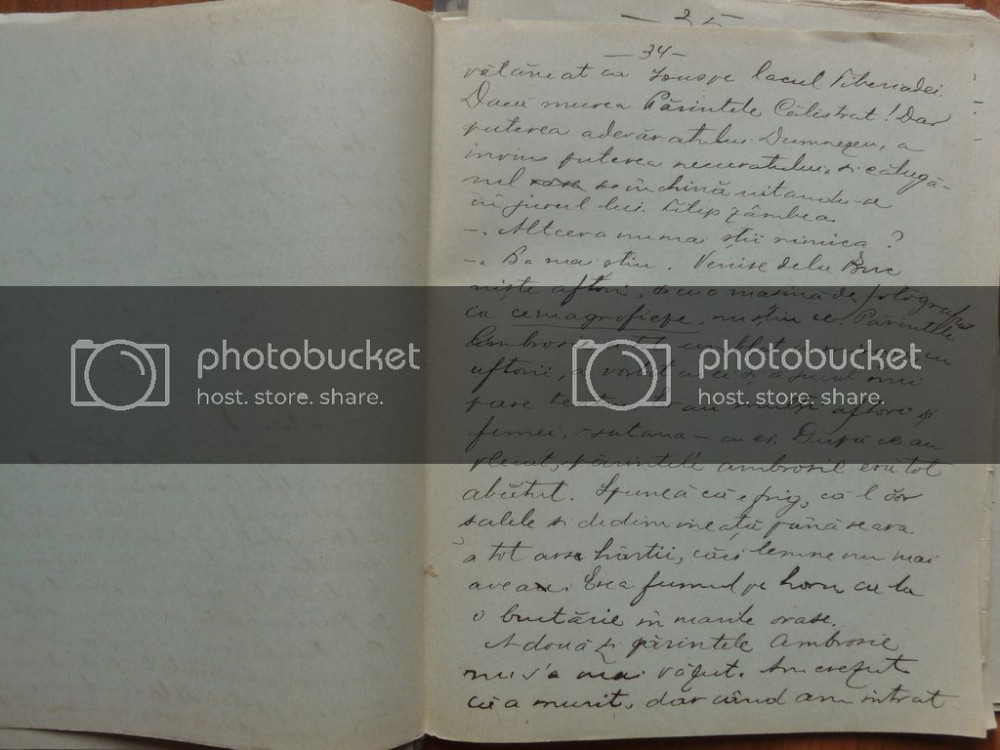 — 35
— 34 —
vătămat ca Isus pe lacul Tiberiadei.
Dacă murea Părintele Calistrat! Dar
puterea adevăratului Dumnezeu, a
învins puterea necuratului, și călugă-
rul se închină uitându-se
în jurul lui. Filip zâmbea.
—. Altceva nu mai știi nimica?
—. Ba mai știu. Venise dela Buc
niște aftori, și cu o mașină de fotografiat
ca cemagrofiefe, nu știu ce. Părintele
Ambrosie
aftorii, a vorbit cu ei și a jucat îmi
pare au mulți aftori și
femei, — satana — cu ei. După ce au
plecat, părintele ambrosie era tot
abătut. Spunea că e frig, că-l dor
șalele și dedimineață până seara
a tot arse hârtii, căci lemne nu mai
avea. Eșea fumul pe horn ca la
o bucătărie în marile orașe.
A doua zi părintele Ambrosie
nu s'a mai văzut. Am crezut
că a murit, dar când am intrat
photobucket
host. store. share.
photobucket
host. store. share.